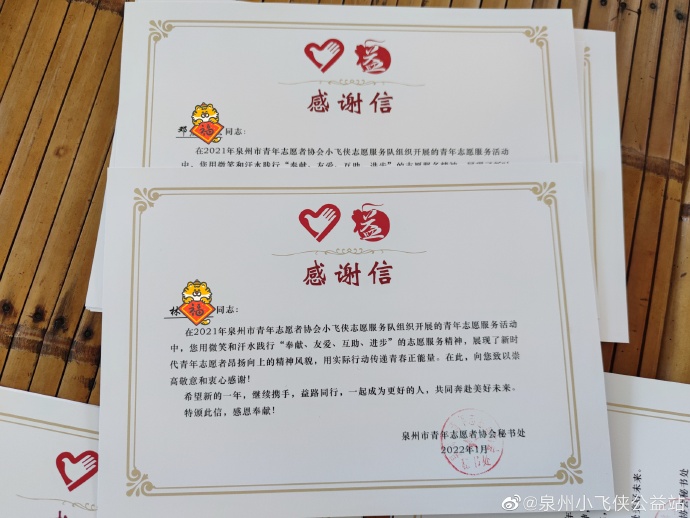 益
感谢信
邓
福
同志：
在2021年泉州市青年志愿者协会小飞侠志愿服务队组织开展的青年志愿服务活动
中，您用微笑和汗水践行“奉献、友爱、互助、进步”的志愿服务精神，展现了新时
益
感谢信
林
福
同志：
在2021年泉州市青年志愿者协会小飞侠志愿服务队组织开展的青年志愿服务活动
中，您用微笑和汗水践行“奉献、友爱、互助、进步”的志愿服务精神，展现了新时
代青年志愿者昂扬向上的精神风貌，用实际行动传递青春正能量。在此，向您致以崇
高敬意和衷心感谢！
希望新的一年，继续携手，益路同行，一起成为更好的人，共同奔赴美好未来。
特颁此信，感恩奉献！
泉州市青年志愿者协会秘书处
2022年1月
秘书处
美好未来。
协会秘书处
@泉州小飞侠公益站